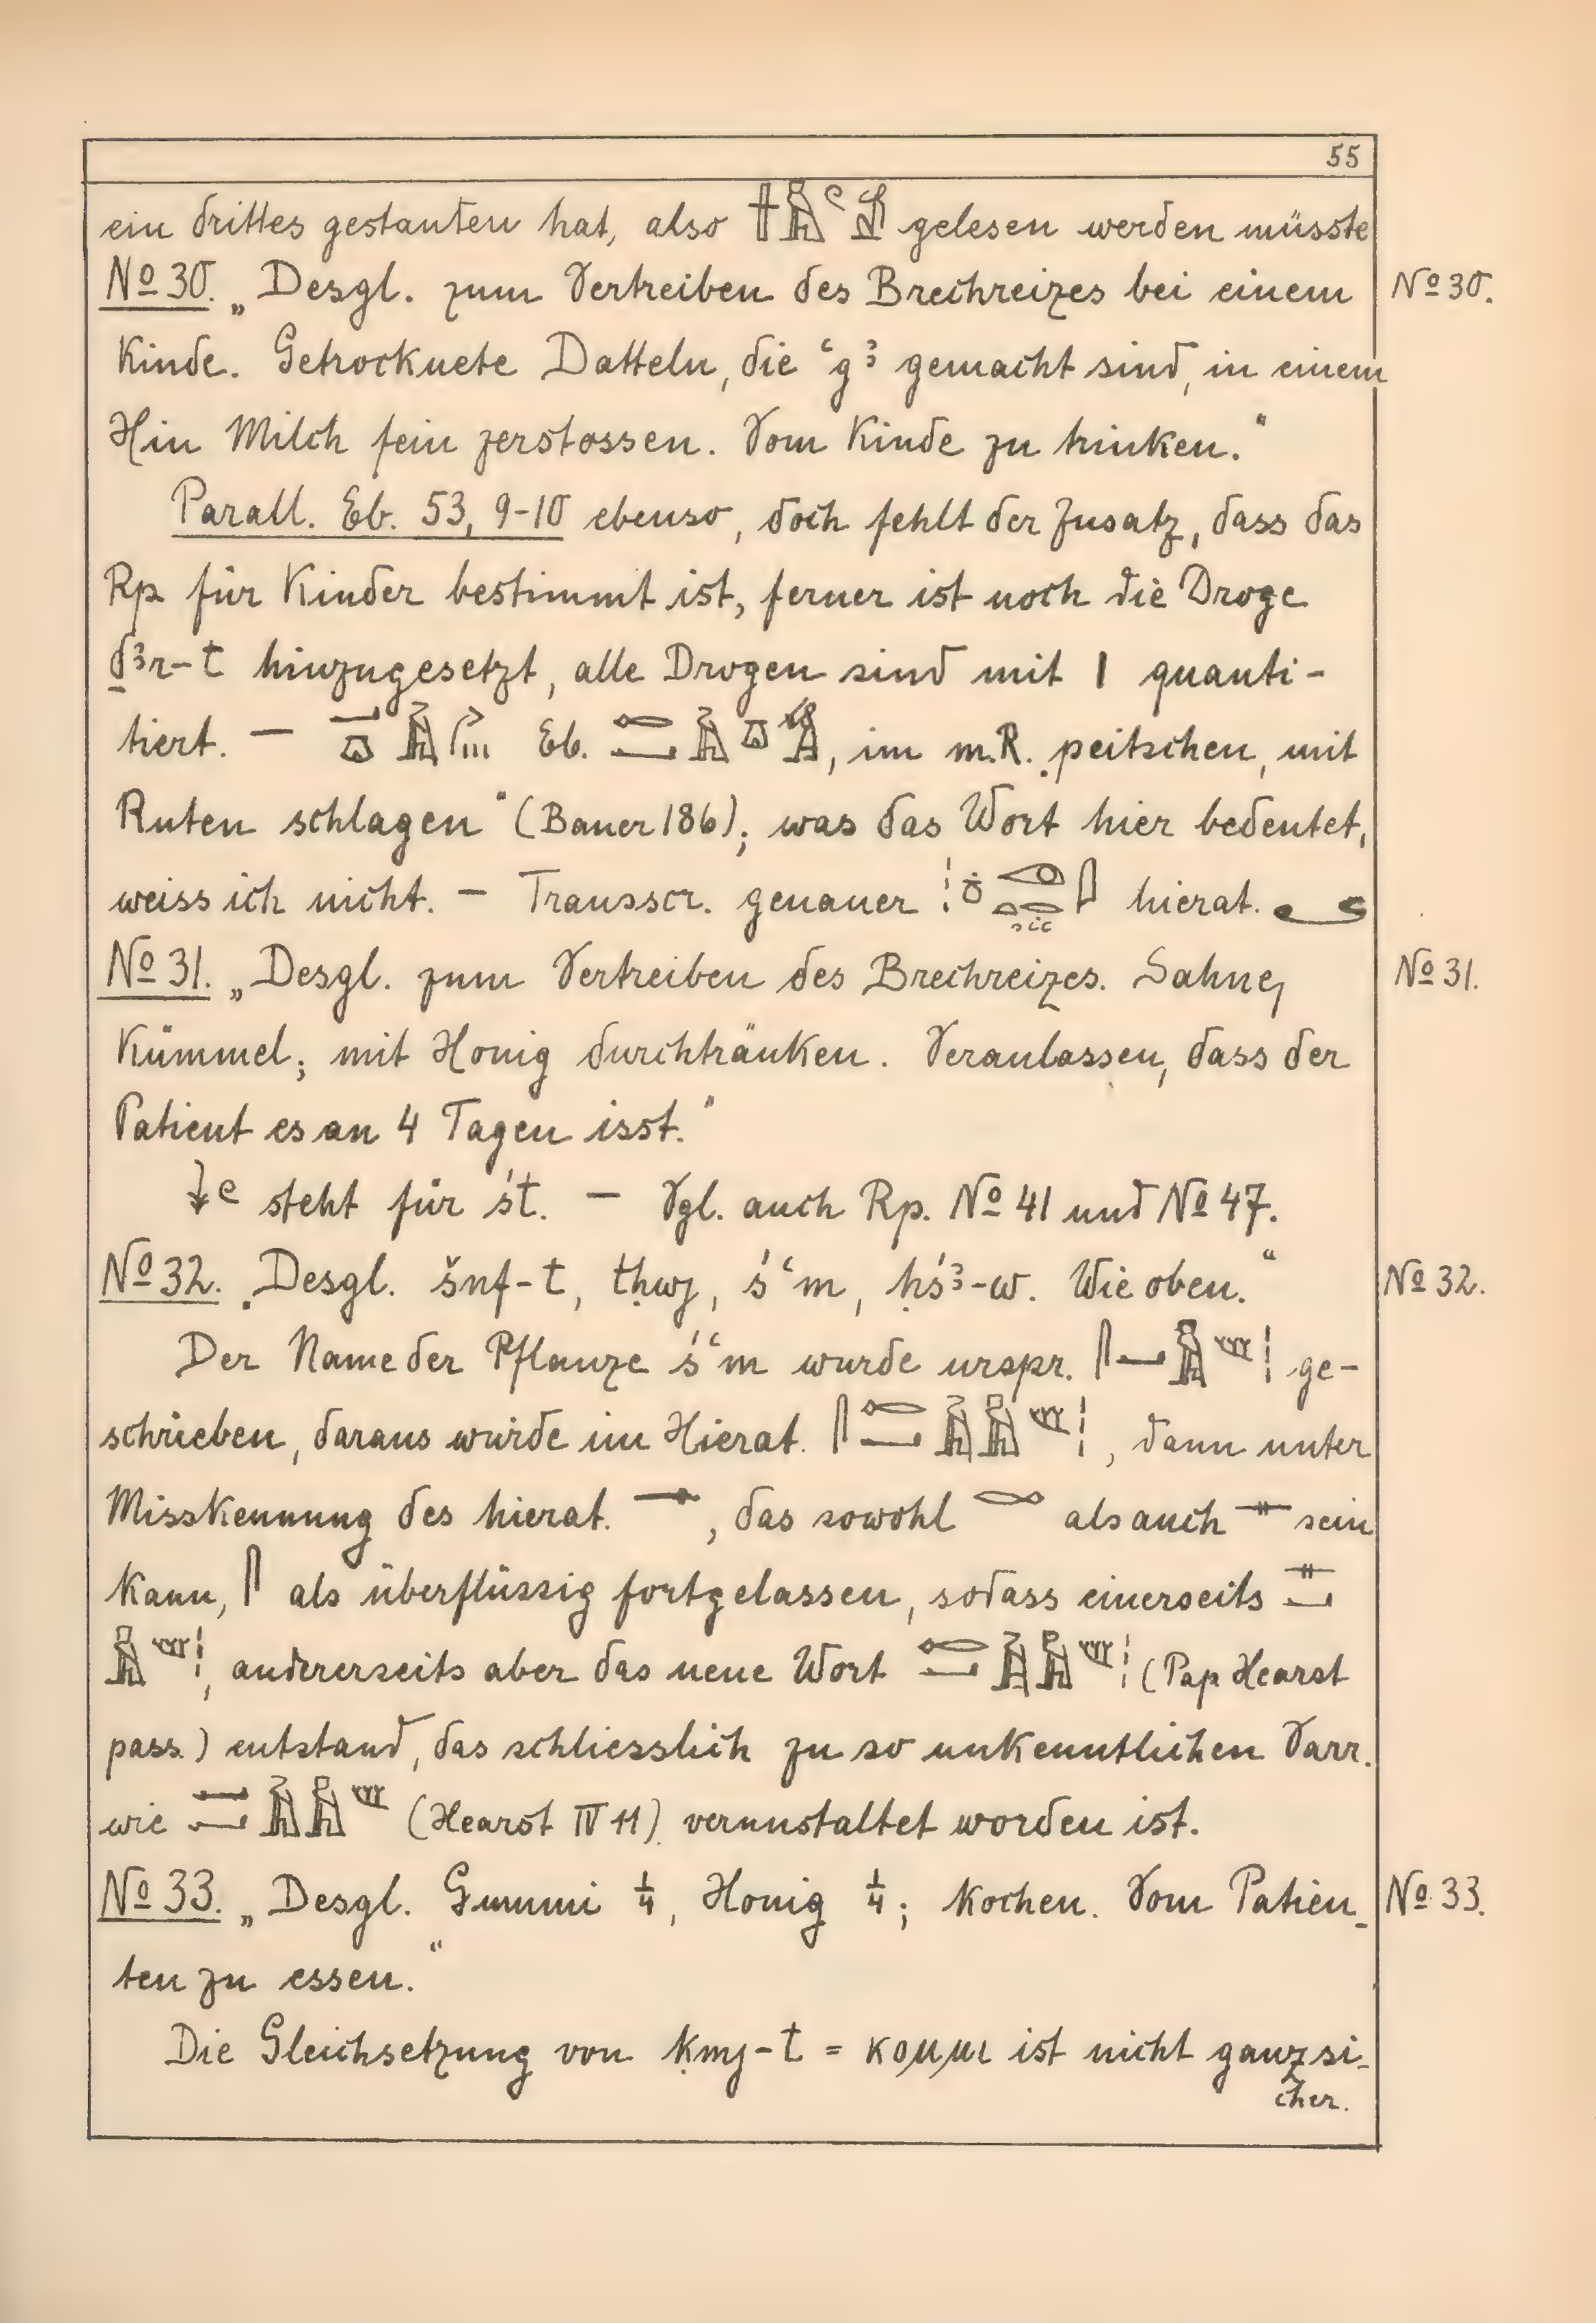 55
ein drittes gestanden hat, also gelesen werden müsste
No 30. „Desgl. zum Vertreiben des Brechreizes bei einem No 30.
Kinde. Getrocknete Datteln, die ꜥgꜣ gemacht sind, in einem
Hin Milch fein zerstossen. Vom Kinde zu trinken."
Parall. Eb. 53, 9-10 ebenso, doch fehlt der Zusatz, dass das
Rp für Kinder bestimmt ist, ferner ist noch die Droge
ḏꜣr-t hinzugesetzt, alle Drogen sind mit 1 quanti-
tiert. — Eb. , im m.R. „peitschen, mit
Ruten schlagen" (Bauer 186); was das Wort hier bedeutet,
weiss ich nicht. — Transscr. genauer sic hierat.
No 31. „Desgl. zum Vertreiben des Brechreizes. Sahne,
No 31.
Kümmel; mit Honig durchtränken. Veranlassen, dass der
Patient es an 4 Tagen isst."
steht für śt. — Vgl. auch Rp. No 41 und No 47.
No 32. „Desgl. šnf-t, tḥwj, śꜥm, ḥśꜣ-w. Wie oben."
No 32.
Der Name der Pflanze śꜥm wurde urspr. ge-
schrieben, daraus wurde im Hierat. , dann unter
Misskennung des hierat. , das sowohl als auch sein
kann, als überflüssig fortgelassen, sodass einerseits
, andererseits aber das neue Wort (Pap Hearst
pass.) entstand, das schliesslich zu so unkenntlichen Varr.
wie (Hearst IV 11) verunstaltet worden ist.
No 33. „Desgl. Gummi 1/4, Honig 1/4; kochen. Vom Patien-
No 33.
ten zu essen."
Die Gleichsetzung von ḳmj-t = κομμι ist nicht ganz si-
cher.